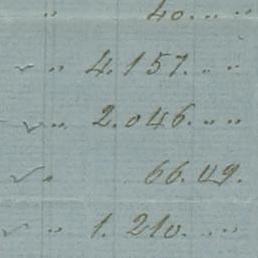 " 40. " "
✓ " 4.157. " "
✓ " 2.046. " "
✓ " 66.09.
✓ " 1.210. " "